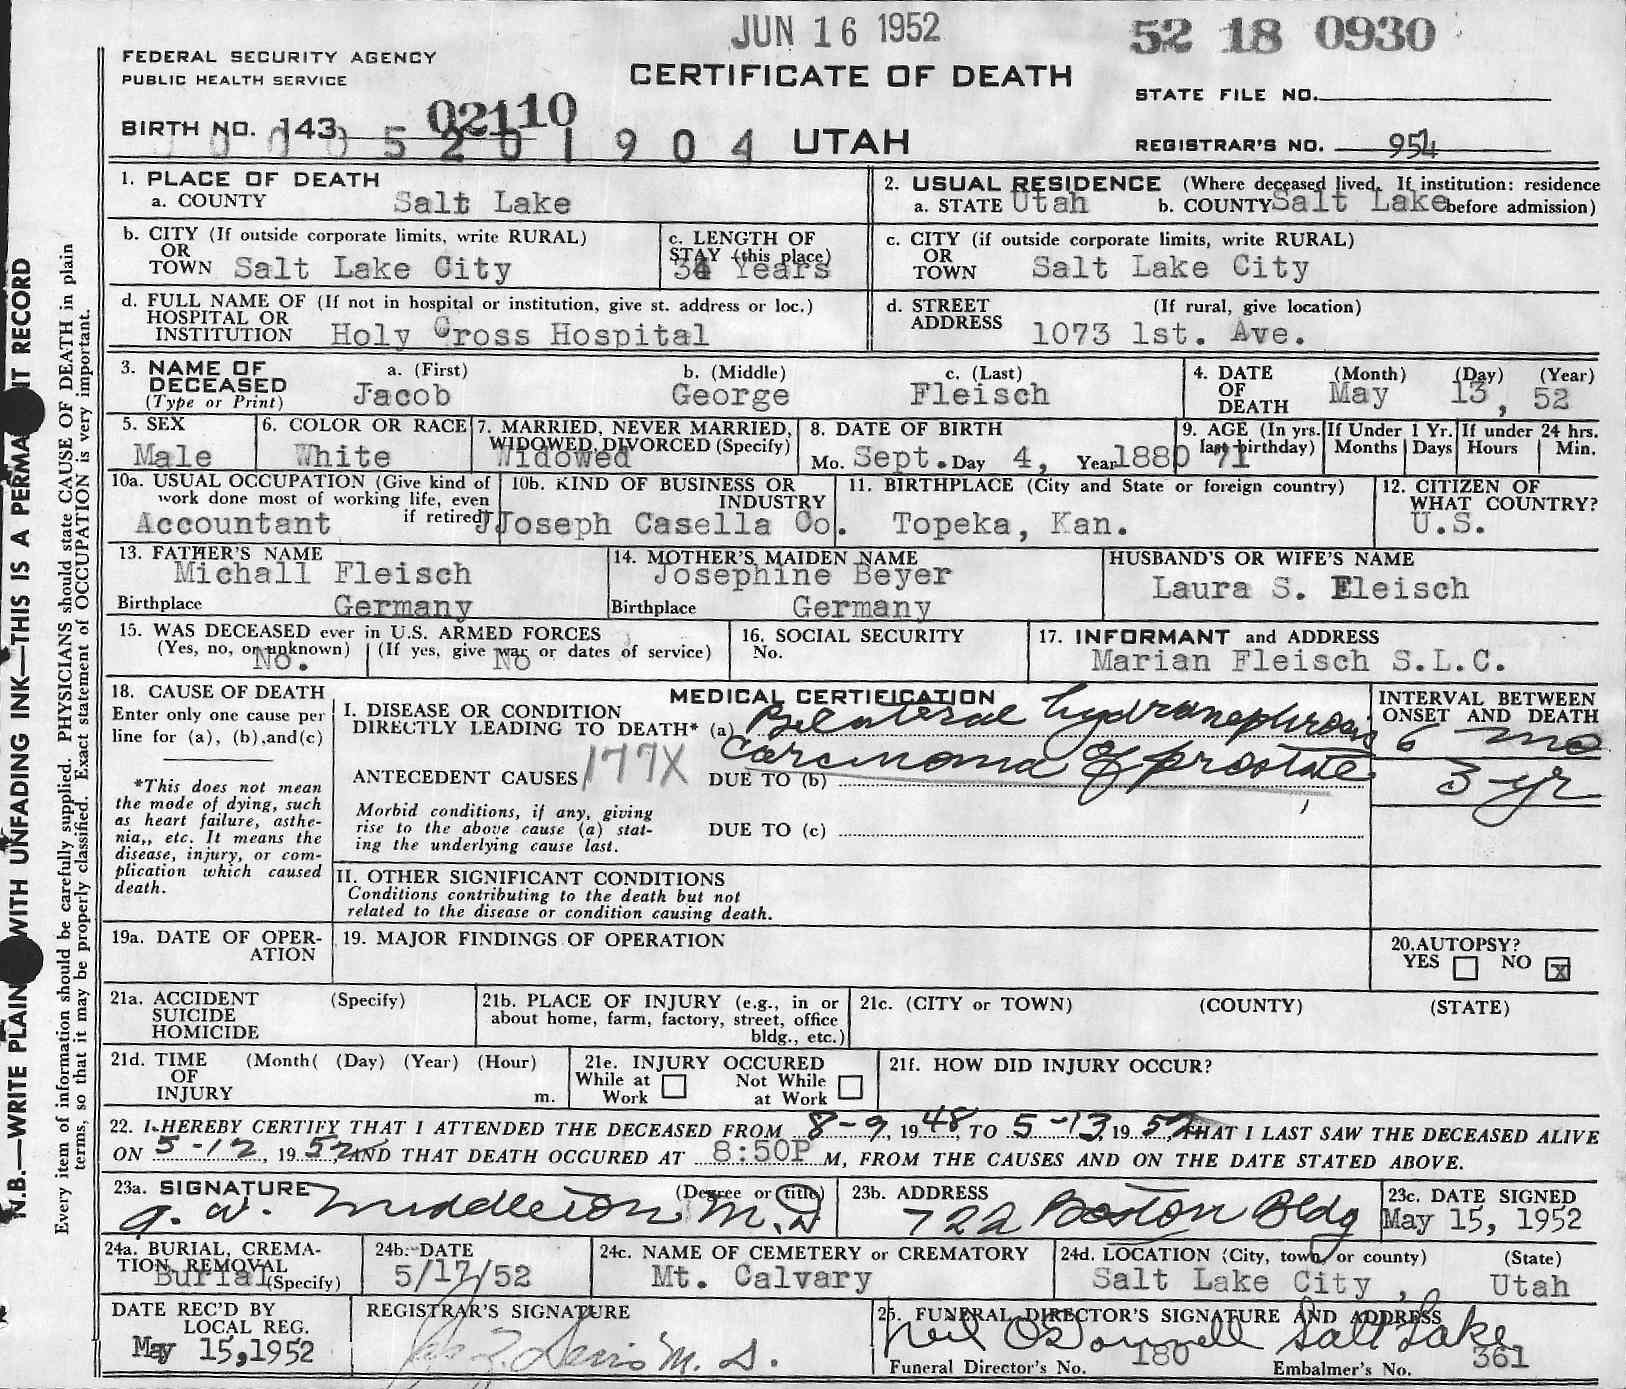 JUN 16 1952
52 18 0930
FEDERAL SECURITY AGENCY
PUBLIC HEALTH SERVICE
CERTIFICATE OF DEATH
STATE FILE NO.
BIRTH NO. 143
02110
5 2 0 1 9 0 4
UTAH
REGISTRAR'S NO. 954
1. PLACE OF DEATH
a. COUNTY Salt Lake
2. USUAL RESIDENCE (Where deceased lived. If institution: residence before admission)
a. STATE Utah b. COUNTY Salt Lake
b. CITY (If outside corporate limits, write RURAL)
OR
TOWN Salt Lake City
c. LENGTH OF
STAY (this place)
Years
c. CITY (if outside corporate limits, write RURAL)
OR
TOWN Salt Lake City
d. FULL NAME OF (If not in hospital or institution, give st. address or loc.)
HOSPITAL OR
INSTITUTION Holy Cross Hospital
d. STREET (If rural, give location)
ADDRESS 1073 1st. Ave.
3. NAME OF
DECEASED
(Type or Print)
a. (First) b. (Middle) c. (Last)
Jacob George Fleisch
4. DATE
OF
DEATH
(Month) (Day) (Year)
May 13, 52
5. SEX
Male
6. COLOR OR RACE
White
7. MARRIED, NEVER MARRIED,
WIDOWED, DIVORCED (Specify)
Widowed
8. DATE OF BIRTH
Mo. Sept. Day 4, Year 1880
9. AGE (In yrs. last birthday)
71
If Under 1 Yr.
Months Days
If under 24 hrs.
Hours Min.
10a. USUAL OCCUPATION (Give kind of
work done most of working life, even
if retired)
Accountant
10b. KIND OF BUSINESS OR
INDUSTRY
Joseph Casella Co.
11. BIRTHPLACE (City and State or foreign country)
Topeka, Kan.
12. CITIZEN OF
WHAT COUNTRY?
U.S.
13. FATHER'S NAME
Michall Fleisch
Birthplace Germany
14. MOTHER'S MAIDEN NAME
Josephine Beyer
Birthplace Germany
HUSBAND'S OR WIFE'S NAME
Laura S. Fleisch
15. WAS DECEASED ever in U.S. ARMED FORCES
(Yes, no, or unknown) (If yes, give war or dates of service)
No. No
16. SOCIAL SECURITY
No.
17. INFORMANT and ADDRESS
Marian Fleisch S.L.C.
18. CAUSE OF DEATH
Enter only one cause per
line for (a), (b),and(c)
*This does not mean
the mode of dying, such
as heart failure, asthe-
nia,, etc. It means the
disease, injury, or com-
plication which caused
death.
MEDICAL CERTIFICATION
I. DISEASE OR CONDITION
DIRECTLY LEADING TO DEATH* (a) Bilateral hydronephrosis
ANTECEDENT CAUSES 177X DUE TO (b) Carcinoma of prostate
Morbid conditions, if any, giving
rise to the above cause (a) stat-
ing the underlying cause last.
DUE TO (c)
INTERVAL BETWEEN
ONSET AND DEATH
6 mo
3 yr
II. OTHER SIGNIFICANT CONDITIONS
Conditions contributing to the death but not
related to the disease or condition causing death.
19a. DATE OF OPER-
ATION
19. MAJOR FINDINGS OF OPERATION
20.AUTOPSY?
YES NO X
21a. ACCIDENT (Specify)
SUICIDE
HOMICIDE
21b. PLACE OF INJURY (e.g., in or
about home, farm, factory, street, office
bldg., etc.)
21c. (CITY or TOWN) (COUNTY) (STATE)
21d. TIME (Month( (Day) (Year) (Hour)
OF
INJURY m.
21e. INJURY OCCURED
While at Work Not While at Work
21f. HOW DID INJURY OCCUR?
22. I HEREBY CERTIFY THAT I ATTENDED THE DECEASED FROM 8-9, 1948, TO 5-13, 1952, THAT I LAST SAW THE DECEASED ALIVE
ON 5-12, 1952, AND THAT DEATH OCCURED AT 8:50P M, FROM THE CAUSES AND ON THE DATE STATED ABOVE.
23a. SIGNATURE (Degree or title)
A. W. Middleton M.D
23b. ADDRESS
722 Boston Bldg
23c. DATE SIGNED
May 15, 1952
24a. BURIAL, CREMA-
TION, REMOVAL
(Specify)
Burial
24b. DATE
5/17/52
24c. NAME OF CEMETERY or CREMATORY
Mt. Calvary
24d. LOCATION (City, town, or county) (State)
Salt Lake City, Utah
DATE REC'D BY
LOCAL REG.
May 15,1952
REGISTRAR'S SIGNATURE
M. D.
25. FUNERAL DIRECTOR'S SIGNATURE AND ADDRESS
Neil O'Donnell Salt Lake
Funeral Director's No. 180 Embalmer's No. 361
N.B.—WRITE PLAIN WITH UNFADING INK—THIS IS A PERMA T RECORD
Every item of information should be carefully supplied. PHYSICIANS should state CAUSE OF DEATH in plain
terms, so that it may be properly classified. Exact statement of OCCUPATION is very important.